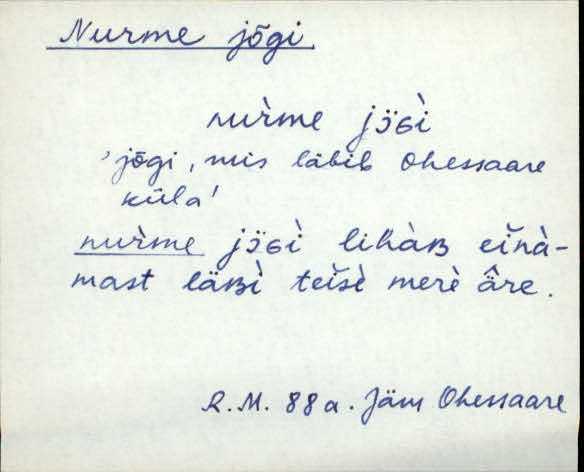 Nurme jõgi.
nur̀me jɔ̈ɢì
'jõgi, mis läbib Ohessaare
küla'
nur̀me jɔ̈ɢì lihàʙ eĭnà-
mast läʙì teĭsè merè âre.
R.M. 88 a. Jäm Ohessaare